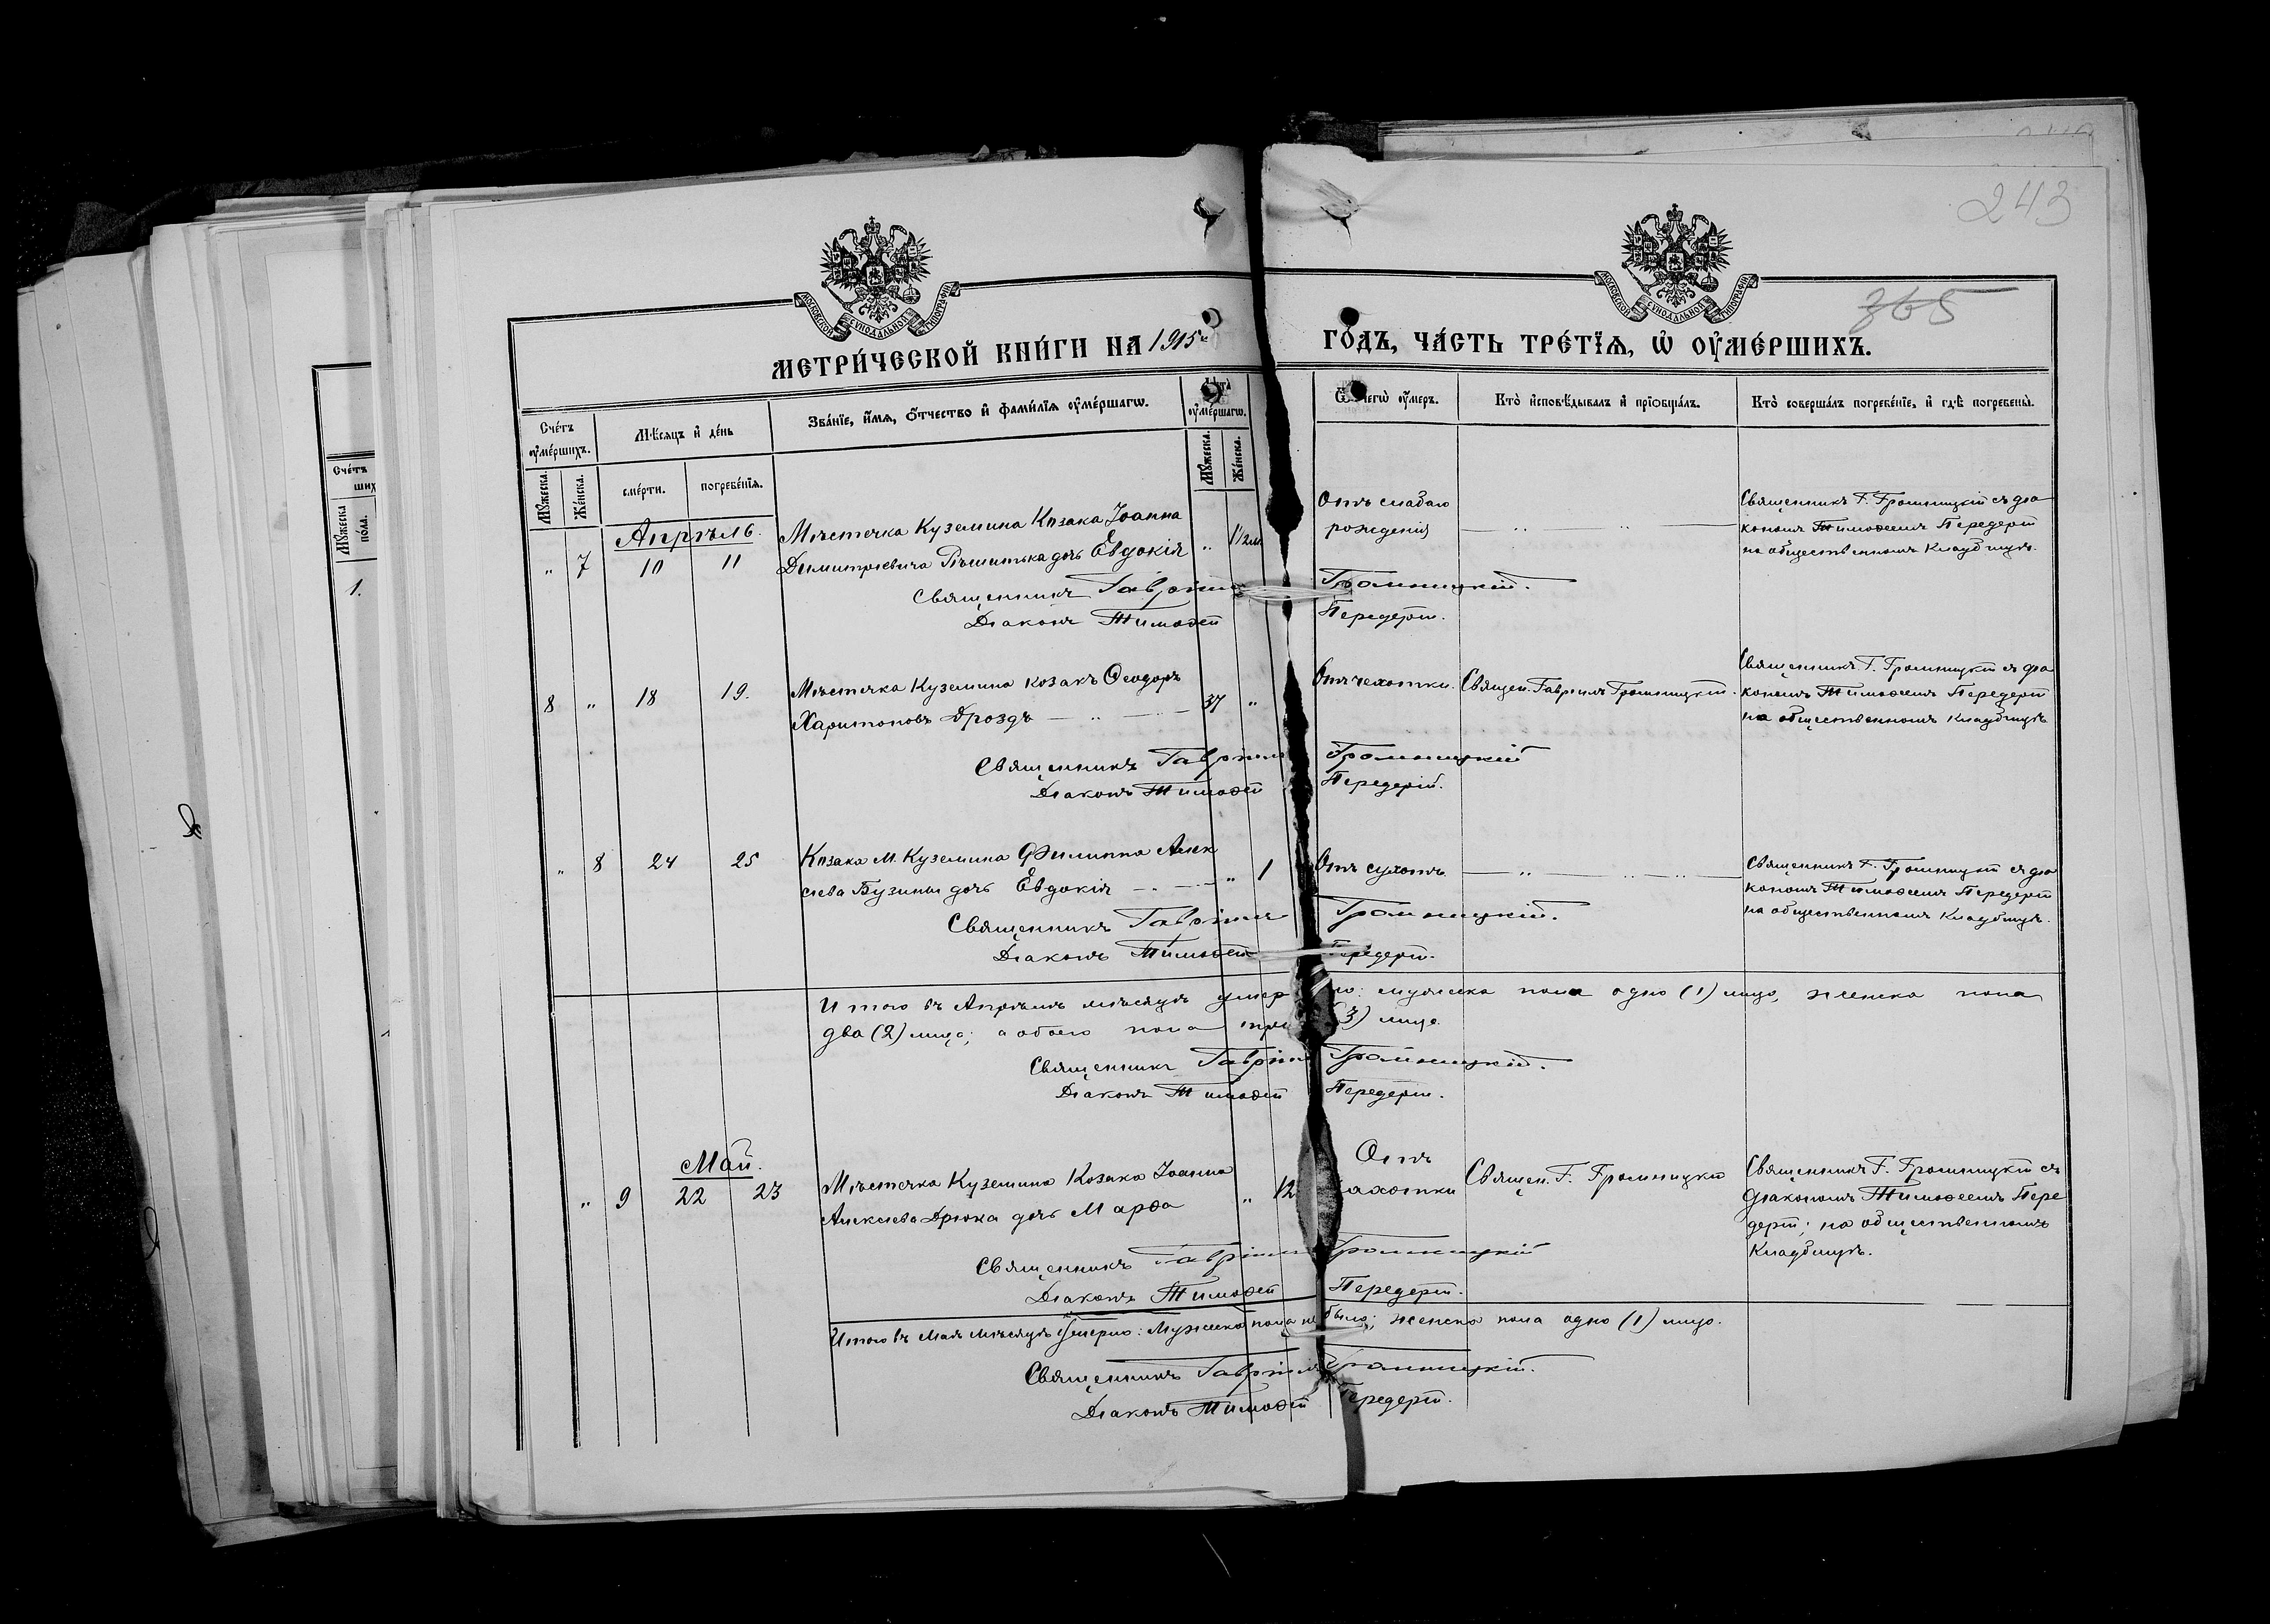 243
365
МОСКОВСКОЙ СѴНОДАЛЬНОЙ ТИПОГРАФІИ
МОСКОВСКОЙ СѴНОДАЛЬНОЙ ТИПОГРАФІИ
МЕТРИ́ЧЕСКОЙ КНИ́ГИ НА 1915й ГО́ДЪ, ЧА́СТЬ ТРЕ́ТЇѦ, Ѡ҆ ОУ҆МЕ́РШИХЪ.
Сче́тъ оу҆ме́ршихъ.
Мѣ́сяцъ и҆ де́нь
Зва́нїе, и҆́мѧ, ѻ҆́тчество и҆ фами́лїѧ оу҆ме́ршагѡ.
Лѣта̀ оу҆ме́ршагѡ.
чегѡ̀ оу҆́меръ.
Кто̀ и҆сповѣ́дывалъ и҆ прїѡбща́лъ.
Кто̀ соверша́лъ погребе́нїе, и҆ гдѣ̀ погребены̀.
Мꙋ́жеска.
Же́нска.
сме́рти.
погребе́нїѧ.
Мꙋ́жеска.
Же́нска.
Сче́тъ
ших
Мꙋ́жеска
по́ла.
1.
Апрѣль.
„ 7 10 11 Мѣстечка Куземина Козака Іоанна
Димитріевича Рѣшитька дочь Евдокія „ 1½ м.
Отъ слабаго
рожденія
Священникъ Г. Громницкій съ діа
кономъ Тимоѳеемъ Передерій
на общественномъ кладбищѣ.
Священникъ Гавріилъ Громницкій.
Діаконъ Тимоѳей Передерій.
8 „ 18 19. Мѣстечка Куземина козакъ Ѳеодоръ
Харитоновъ Дроздъ — „ — 37 „
Отъ чахотки. Священ. Гавріилъ Громницкій.
Священникъ Г. Громницкій съ діа
кономъ Тимоѳеемъ Передерій
на общественномъ кладбищѣ
Священникъ Гавріилъ Громницкій
Діаконъ Тимоѳей Передерій.
„ 8 24 25 Козака М. Куземина Филиппа Алек
сіева Бузины дочь Евдокія „ 1
Отъ сухотъ
Священникъ Г. Громницкій съ діа
кономъ Тимоѳеемъ Передерій
на общественномъ кладбищѣ.
Священникъ Гавріилъ Громницкій.
Діаконъ Тимоѳей Передерій.
Итого въ Апрѣлѣ мѣсяцѣ умерло: мужеска пола одно (1) лицо, женска пола
два (2) лица; а обоего пола три (3) лица.
Священникъ Гавріилъ Громницкій.
Діаконъ Тимоѳей Передерій.
Май.
„ 9 22 23 Мѣстечка Куземина Козака Іоанна
Алексіева Дрюка дочь Марѳа „ 12
Отъ
чахотки
Священ. Г. Громницкій
Священникъ Г. Громницкій съ
діакономъ Тимоѳеемъ Пере
дерій; на общественномъ
кладбищѣ.
Священникъ Гавріилъ Громницкій
Діаконъ Тимоѳей Передерій.
Итого въ Маѣ мѣсяцѣ умерло: Мужеска пола не было; женска пола одно (1) лицо.
Священникъ Гавріилъ Громницкій.
Діаконъ Тимоѳей Передерій.